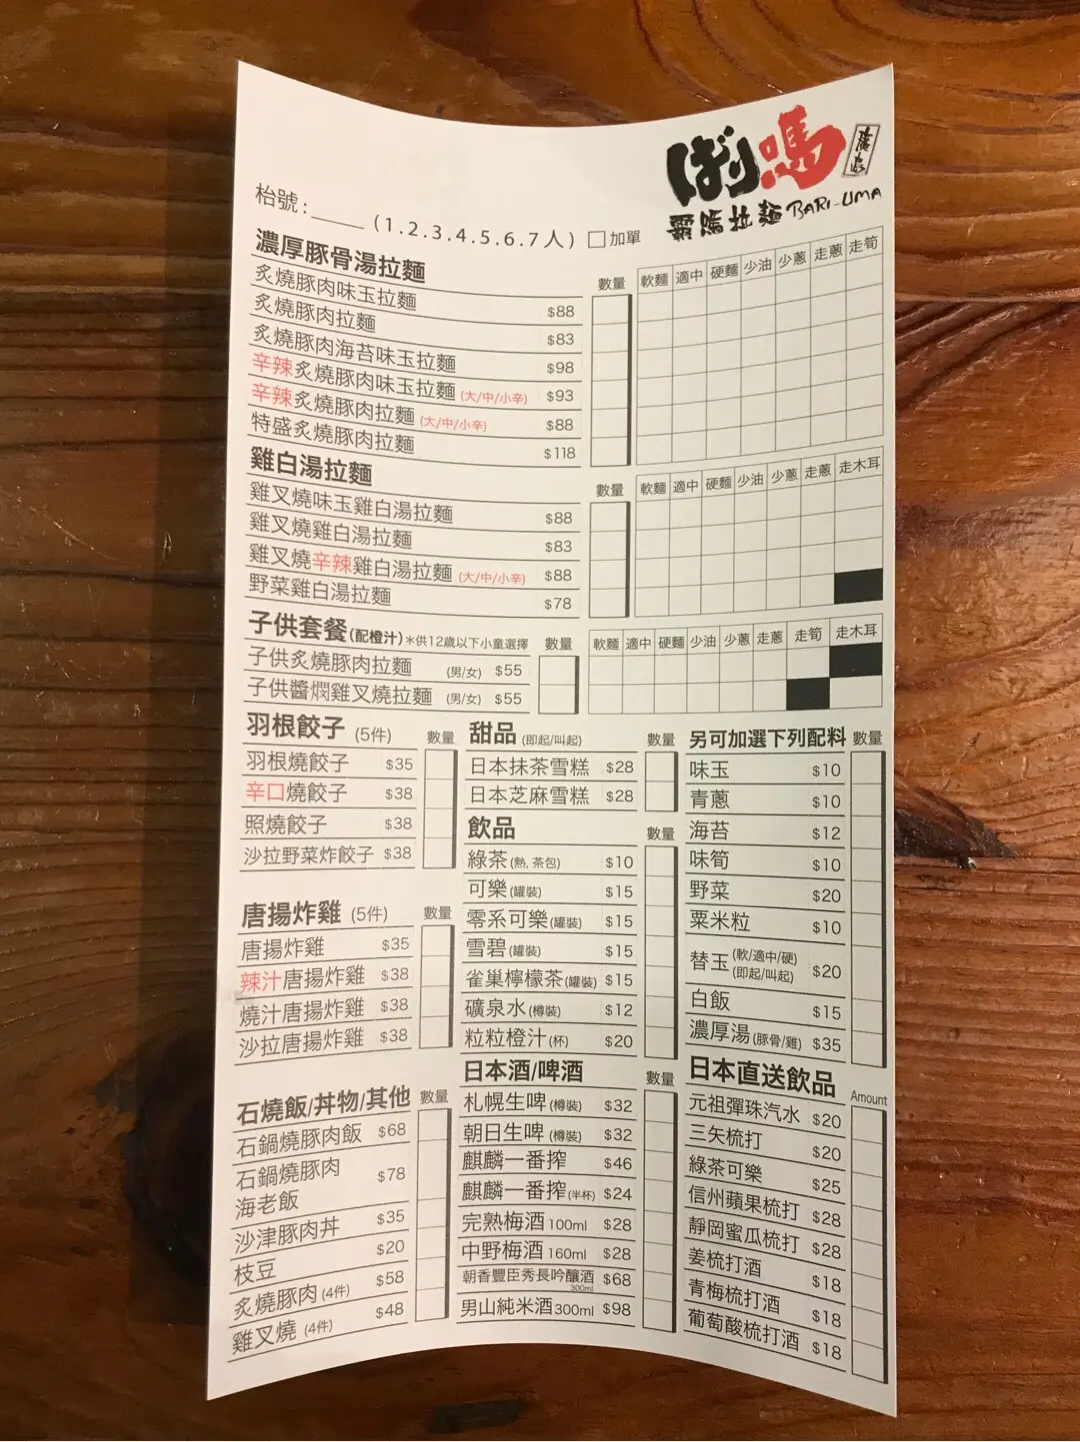 ばり嗎
廣島
霸嗎拉麵 BARI-UMA
枱號:____ (1.2.3.4.5.6.7人) □加單
濃厚豚骨湯拉麵 數量 軟麵 適中 硬麵 少油 少蔥 走蔥 走筍
炙燒豚肉味玉拉麵 $88
炙燒豚肉拉麵 $83
炙燒豚肉海苔味玉拉麵 $98
辛辣炙燒豚肉味玉拉麵 (大/中/小辛) $93
辛辣炙燒豚肉拉麵 (大/中/小辛) $88
特盛炙燒豚肉拉麵 $118
雞白湯拉麵 數量 軟麵 適中 硬麵 少油 少蔥 走蔥 走木耳
雞叉燒味玉雞白湯拉麵 $88
雞叉燒雞白湯拉麵 $83
雞叉燒辛辣雞白湯拉麵 (大/中/小辛) $88
野菜雞白湯拉麵 $78
子供套餐(配橙汁)*供12歲以下小童選擇 數量 軟麵 適中 硬麵 少油 少蔥 走蔥 走筍 走木耳
子供炙燒豚肉拉麵 (男/女) $55
子供醬燜雞叉燒拉麵 (男/女) $55
羽根餃子 (5件) 數量
羽根燒餃子 $35
辛口燒餃子 $38
照燒餃子 $38
沙拉野菜炸餃子 $38
唐揚炸雞 (5件) 數量
唐揚炸雞 $35
辣汁唐揚炸雞 $38
燒汁唐揚炸雞 $38
沙拉唐揚炸雞 $38
石燒飯/丼物/其他 數量
石鍋燒豚肉飯 $68
石鍋燒豚肉
海老飯 $78
沙津豚肉丼 $35
枝豆 $20
炙燒豚肉 (4件) $58
雞叉燒 (4件) $48
甜品 (即起/叫起) 數量
日本抹茶雪糕 $28
日本芝麻雪糕 $28
飲品 數量
綠茶(熱、茶包) $10
可樂(罐裝) $15
零系可樂(罐裝) $15
雪碧(罐裝) $15
雀巢檸檬茶(罐裝) $15
礦泉水(樽裝) $12
粒粒橙汁(杯) $20
日本酒/啤酒 數量
札幌生啤(樽裝) $32
朝日生啤(樽裝) $32
麒麟一番搾 $46
麒麟一番搾(半杯) $24
完熟梅酒100ml $28
中野梅酒160ml $28
朝香豐臣秀長吟釀酒 300ml $68
男山純米酒300ml $98
另可加選下列配料 數量
味玉 $10
青蔥 $10
海苔 $12
味筍 $10
野菜 $20
粟米粒 $10
替玉(軟/適中/硬)
(即起/叫起) $20
白飯 $15
濃厚湯(豚骨/雞) $35
日本直送飲品 Amount
元祖彈珠汽水 $20
三矢梳打 $20
綠茶可樂 $25
信州蘋果梳打 $28
靜岡蜜瓜梳打 $28
姜梳打酒 $18
青梅梳打酒 $18
葡萄酸梳打酒 $18